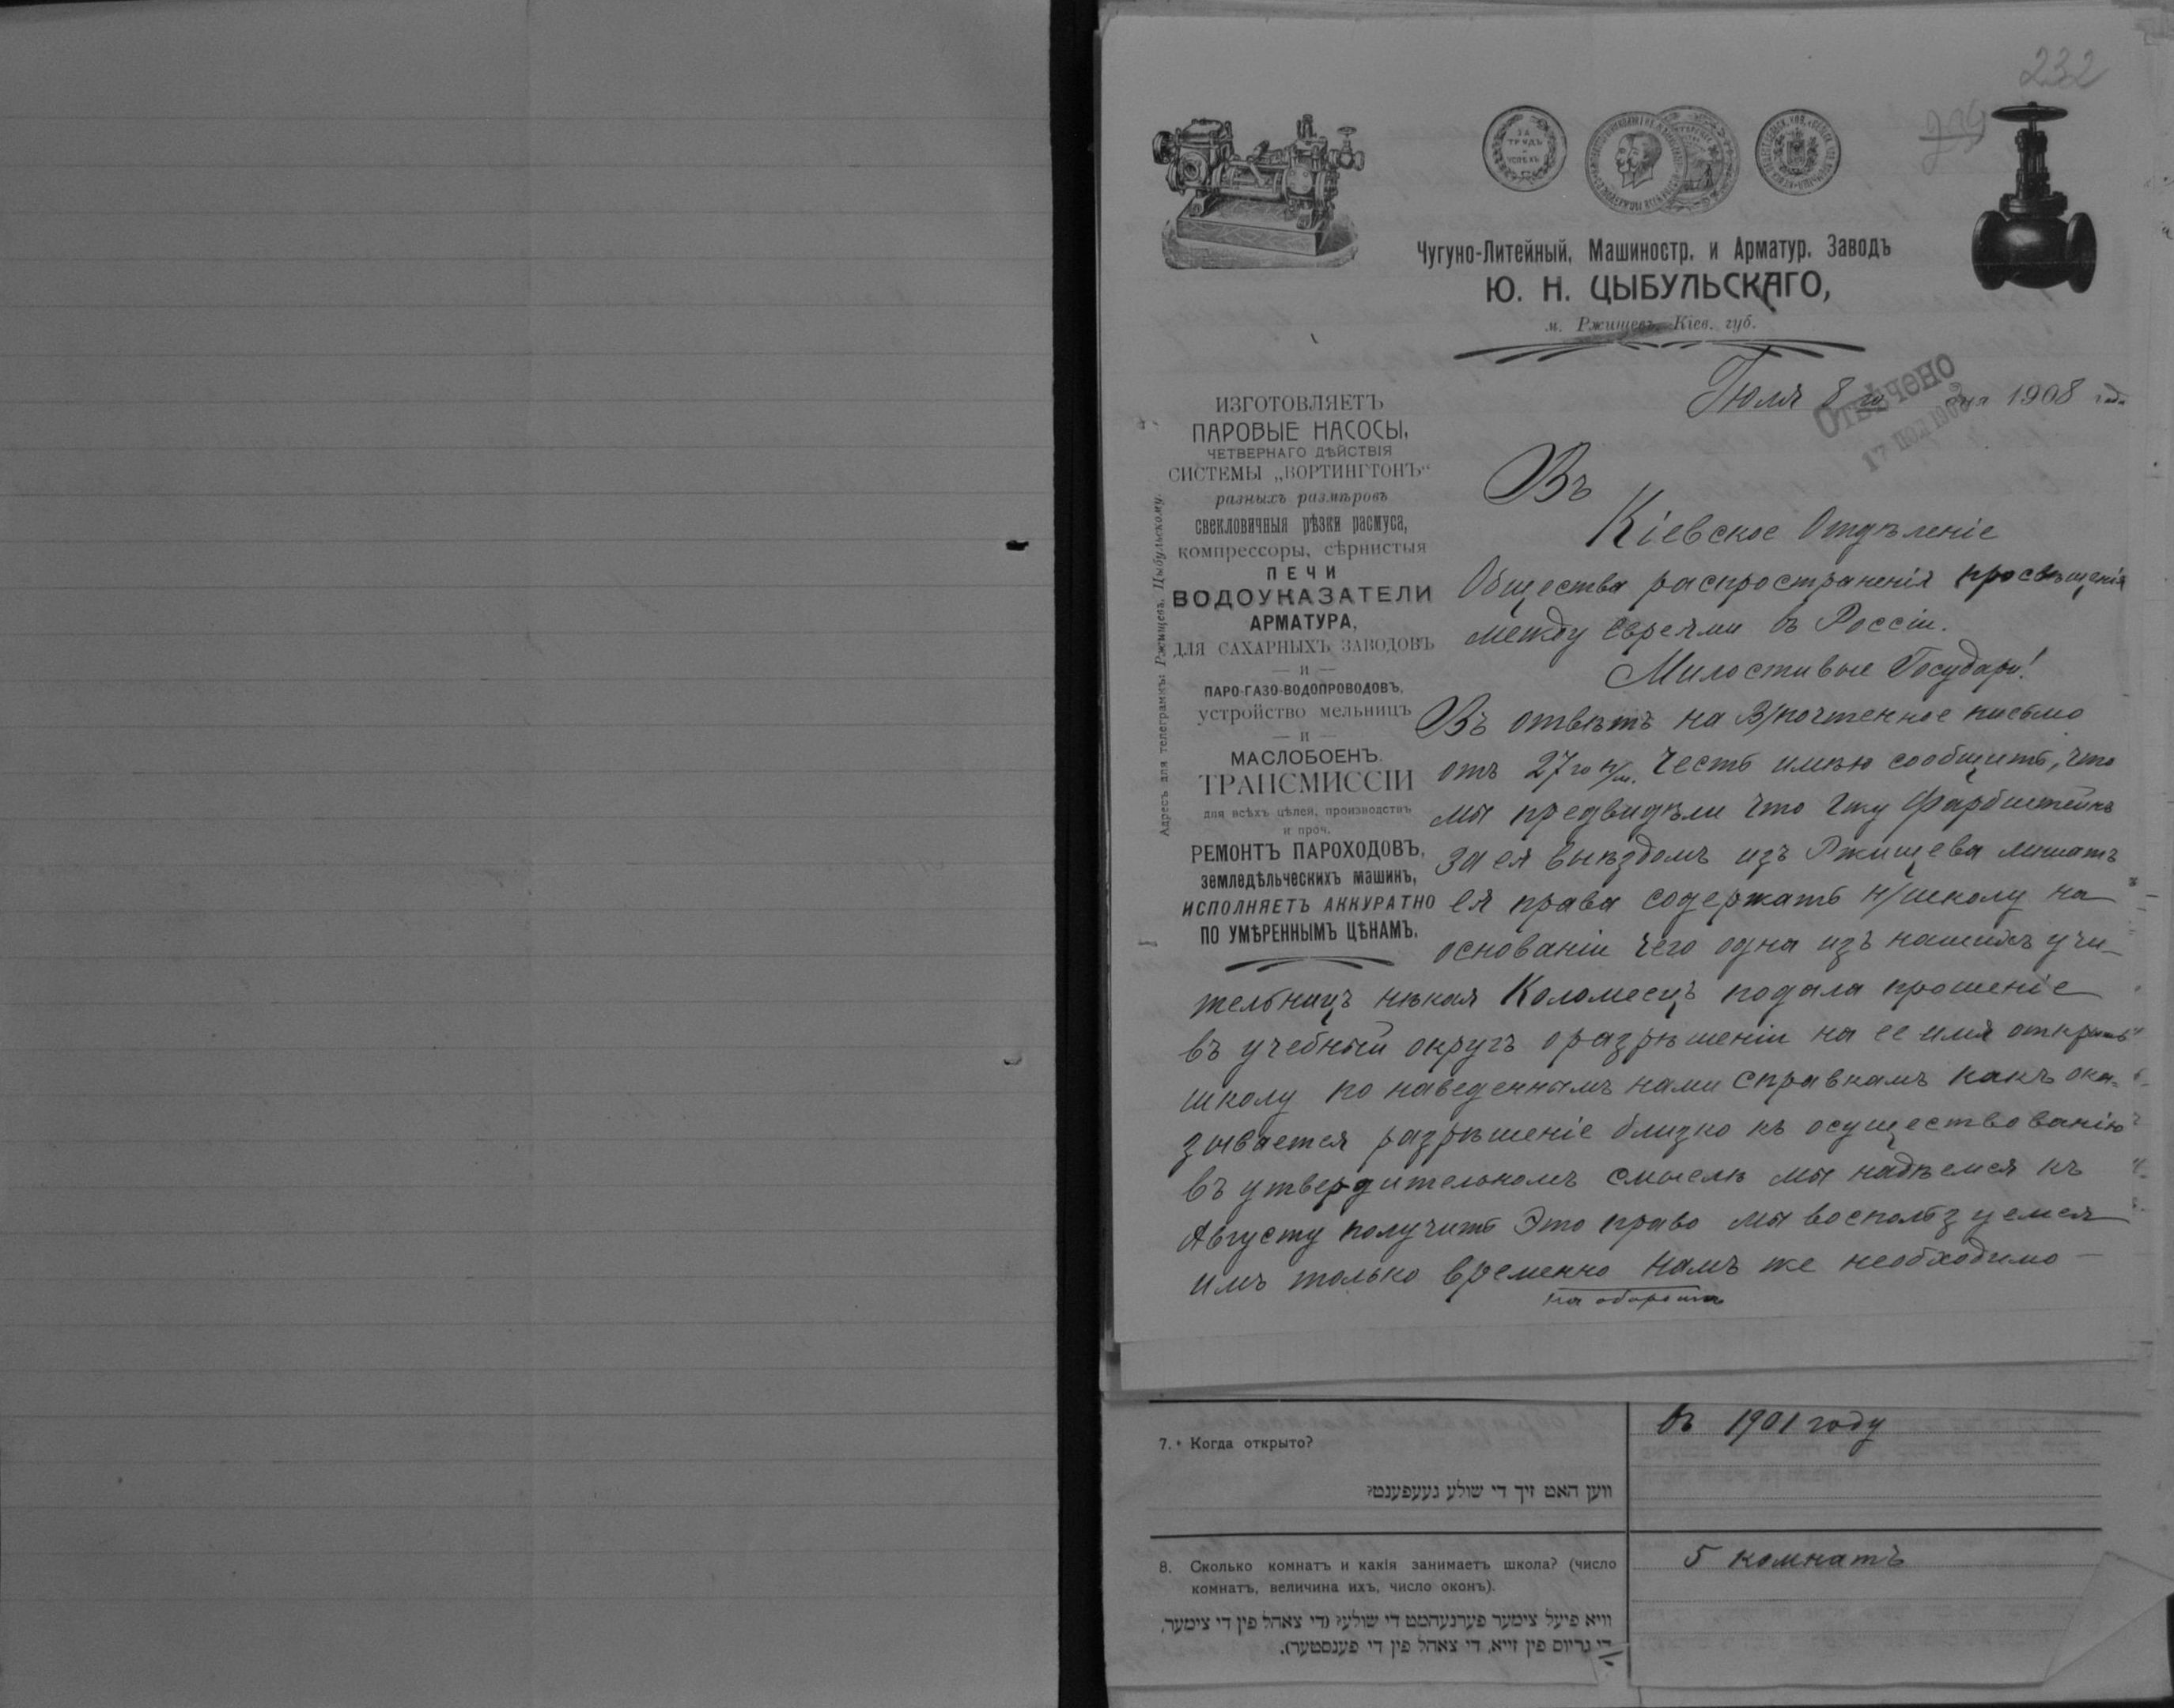 232
ЗА
ТРУДЪ
УСПѢХЪ
Чугуно-Литейный, Машиностр. и Арматур. Заводъ
Ю. Н. ЦЫБУЛЬСКАГО,
м. Ржищевъ, Кіев. губ.
Іюля 8 го дня 1908 года
Отвѣчено
17 1908
Адресъ для телеграммъ: Ржищевъ, Цыбульскому.
ИЗГОТОВЛЯЕТЪ
ПАРОВЫЕ НАСОСЫ,
ЧЕТВЕРНАГО ДѢЙСТВІЯ
СИСТЕМЫ „ВОРТИНГТОНЪ“
разныхъ размѣровъ
свекловичныя рѣзки расмуса,
компрессоры, сѣрнистыя
ПЕЧИ
ВОДОУКАЗАТЕЛИ
АРМАТУРА,
ДЛЯ САХАРНЫХЪ ЗАВОДОВЪ
— и —
ПАРО-ГАЗО-ВОДОПРОВОДОВЪ,
устройство мельницъ
— и —
МАСЛОБОЕНЪ.
ТРАНСМИССІИ
для всѣхъ цѣлей, производствъ
и проч.
РЕМОНТЪ ПАРОХОДОВЪ,
земледѣльческихъ машинъ,
ИСПОЛНЯЕТЪ АККУРАТНО
ПО УМѢРЕННЫМЪ ЦѢНАМЪ.
Въ
Кіевское Отдѣленіе
Общества распространенія просвѣщенія
между евреями въ Россіи.
Милостивые Государи!
Въ отвѣтъ на В/почтенное письмо
отъ 27 го п/м. честь имѣю сообщить, что
мы предвидѣли что Гжу Фарбштейнъ
за ея выѣздомъ изъ Ржищева лишатъ
ея права содержать н/школу на
основаніи чего одна изъ нашихъ учи-
тельницъ нѣкая Коломеецъ подала прошеніе
въ учебный округъ о разрѣшеніи на ее имя открыть
школу по наведеннымъ нами справкамъ какъ ока-
зывается разрѣшеніе близко къ осуществованію
въ утвердительномъ смыслѣ мы надѣемся къ
Августу получить Это право мы воспользуемся
имъ только временно намъ же необходимо —
на оборотѣ
7. Когда открыто?
въ 1901 году
ווען האט זיך די שולע געעפענט?
8. Сколько комнатъ и какія занимаетъ школа? (число
комнатъ, величина ихъ, число оконъ).
5 комнатъ
וויא פיעל צימער פערנעהמט די שולע? (די צאהל פין די צימער,
די גרויס פין זייא, די צאהל פין די פענסטער).